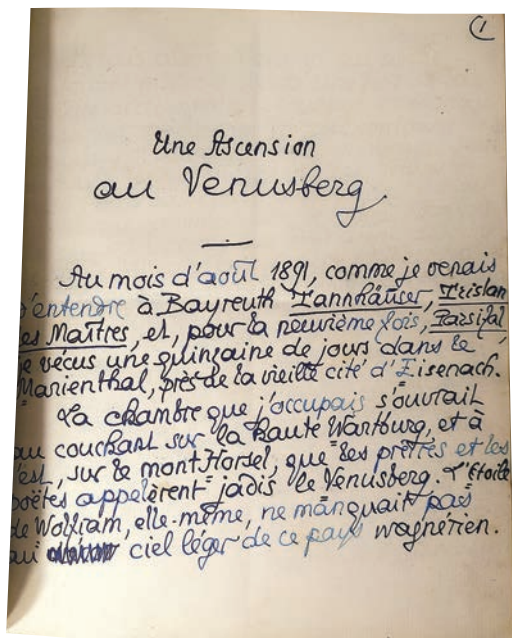 1
Une Ascension
au Venusberg.
Au mois d'août 1891, comme je venais
d'entendre à Bayreuth Tannhäuser, Tristan
les Maîtres, et, pour la neuvième fois, Parsifal,
je vécus une quinzaine de jours dans le
Marienthal, près de la vieille cité d'Eisenach.
La chambre que j'occupais s'ouvrait
au couchant sur la haute Wartburg, et à
l'est, sur le mont Horsel, que les prêtres et les
poëtes appelèrent jadis le Venusberg. L'étoile
de Wolfram, elle-même, ne manquait pas
au ciel léger de ce pays wagnérien.